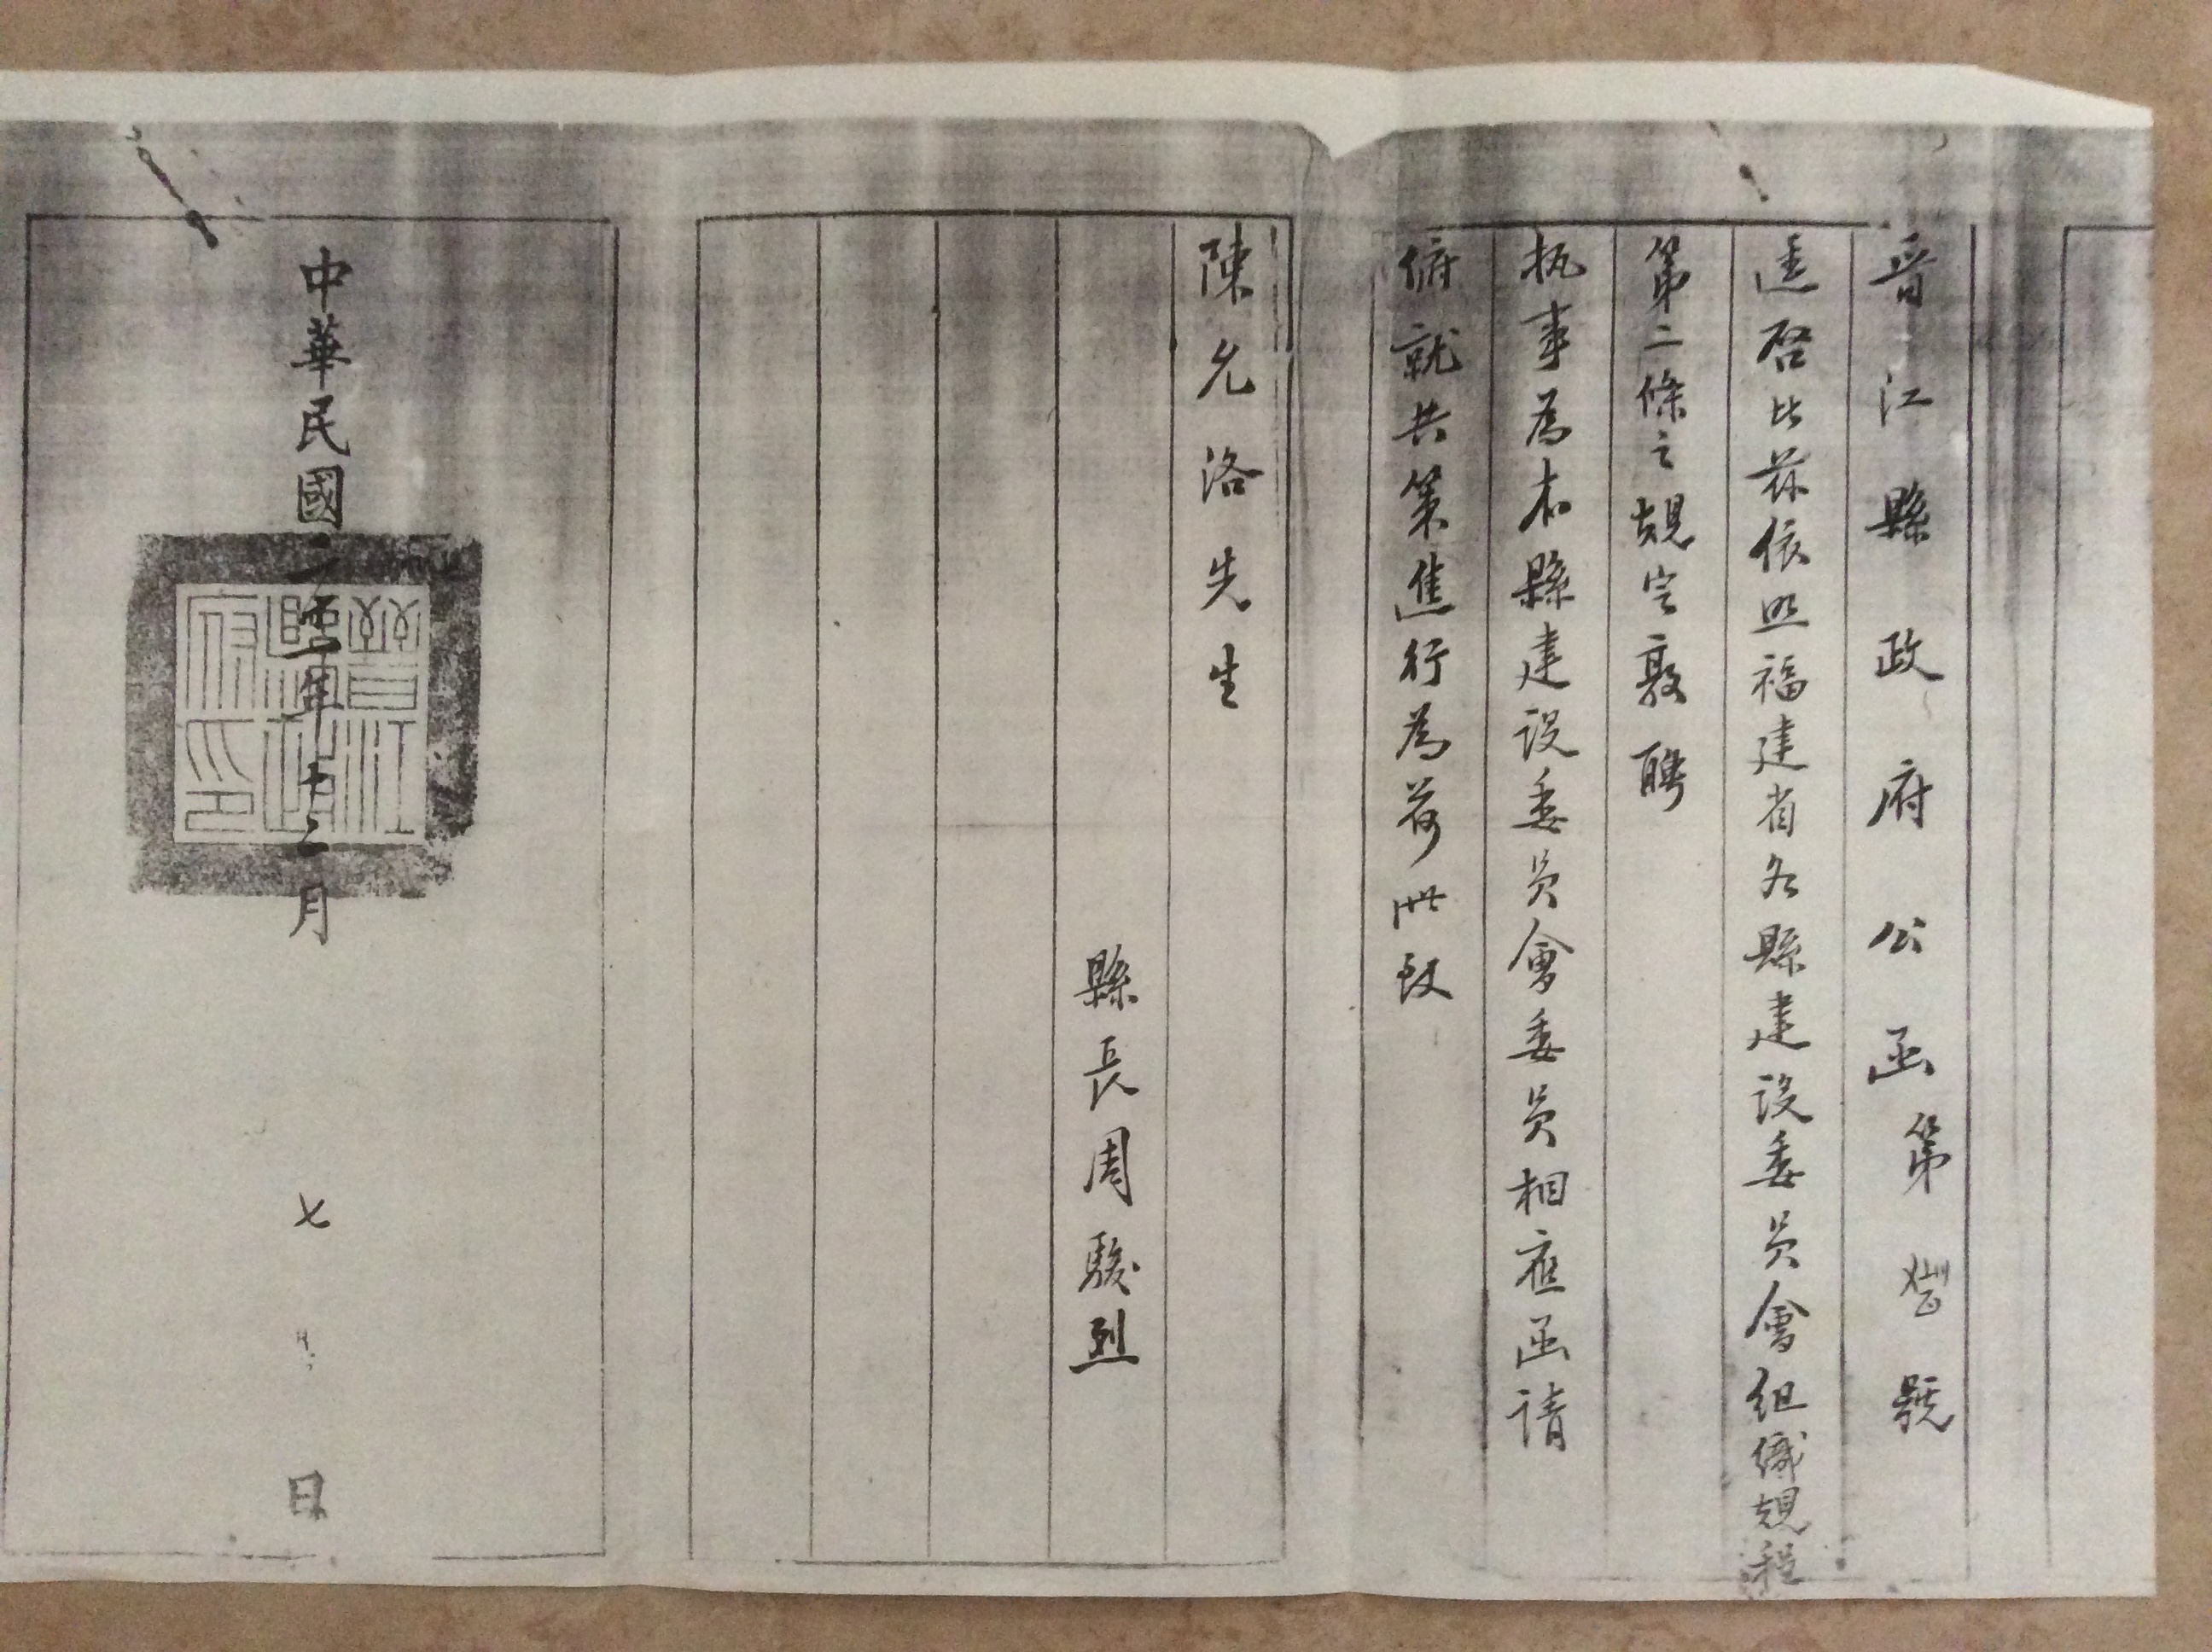 晉江縣政府公函第號
逕啓比茲依照福建省各縣建設委員會組織規程
第二條之規定敦聘
執事為本縣建設委員會委員相應函請
俯就共策進行為荷此致
陳允洛先生
縣長周駿烈
中華民國二年十二月七日
晉江
縣政
府印